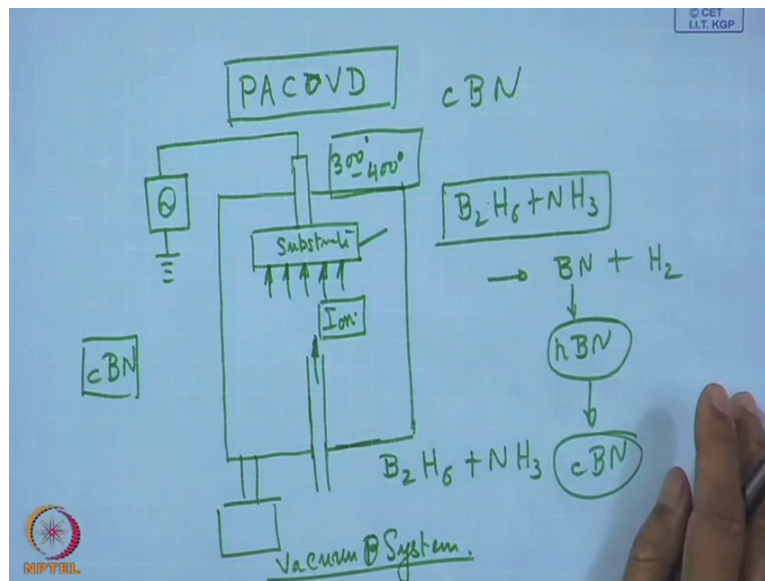 © CET
I.I.T. KGP
PACVD cBN
300°
-400°
B2H6 + NH3
Substrate
→ BN + H2
Ion.
hBN
cBN
B2H6 + NH3 cBN
Vacuum System.
NPTEL